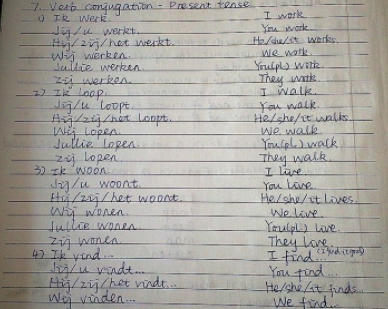 7. Verb conjugation - Present tense
1) Ik werk. I work.
Jij/u werkt. You work.
Hij/zij/het werkt. He/she/it works.
Wij werken. We work.
Jullie werken. You(pl.) work.
Zij werken. They work.
2) Ik loop. I walk.
Jij/u loopt. You walk.
Hij/zij/het loopt. He/she/it walks.
Wij lopen. We walk.
Jullie lopen. You(pl.) walk.
Zij lopen. They walk.
3) Ik woon. I live.
Jij/u woont. You live.
Hij/zij/het woont. He/she/it lives.
Wij wonen. We live.
Jullie wonen. You(pl.) live.
Zij wonen. They live.
4) Ik vind... I find...
Jij/u vindt... You find...
Hij/zij/het vindt... He/she/it finds...
Wij vinden... We find...